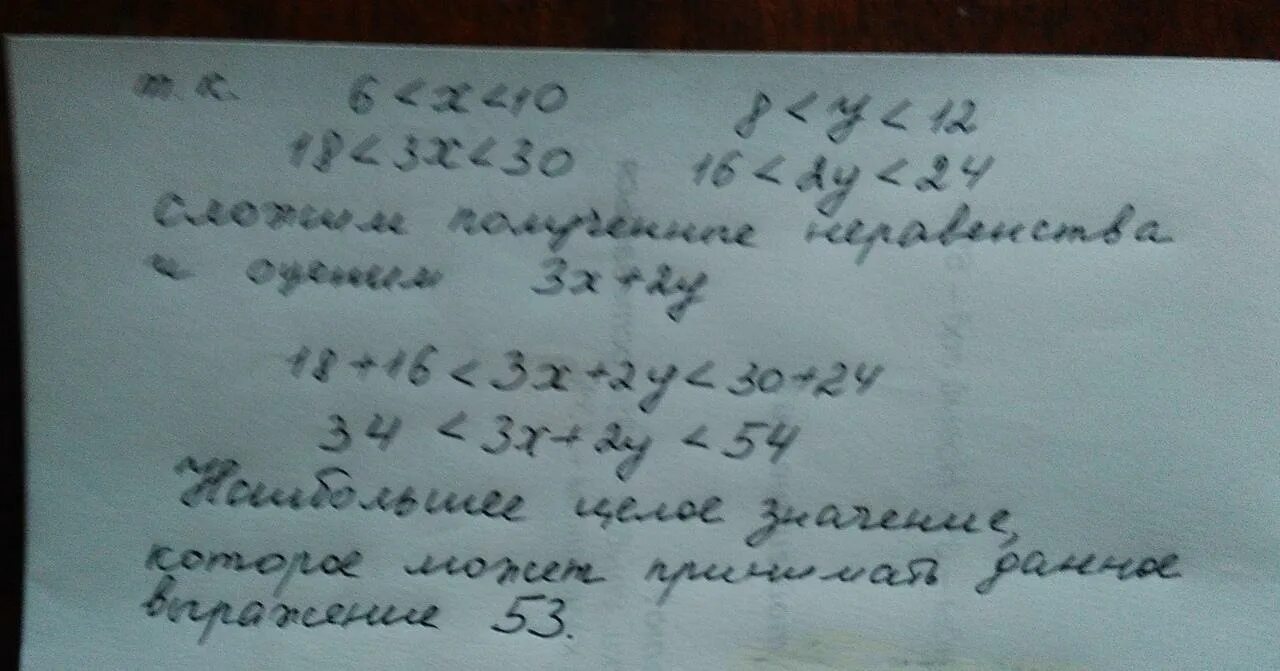 т.к. 6 < x < 10 8 < y < 12
18 < 3x < 30 16 < 2y < 24
сложим полученные неравенства
и оценим 3x + 2y
18 + 16 < 3x + 2y < 30 + 24
34 < 3x + 2y < 54
Наибольшее целое значение,
которое может принимать данное
выражение 53.